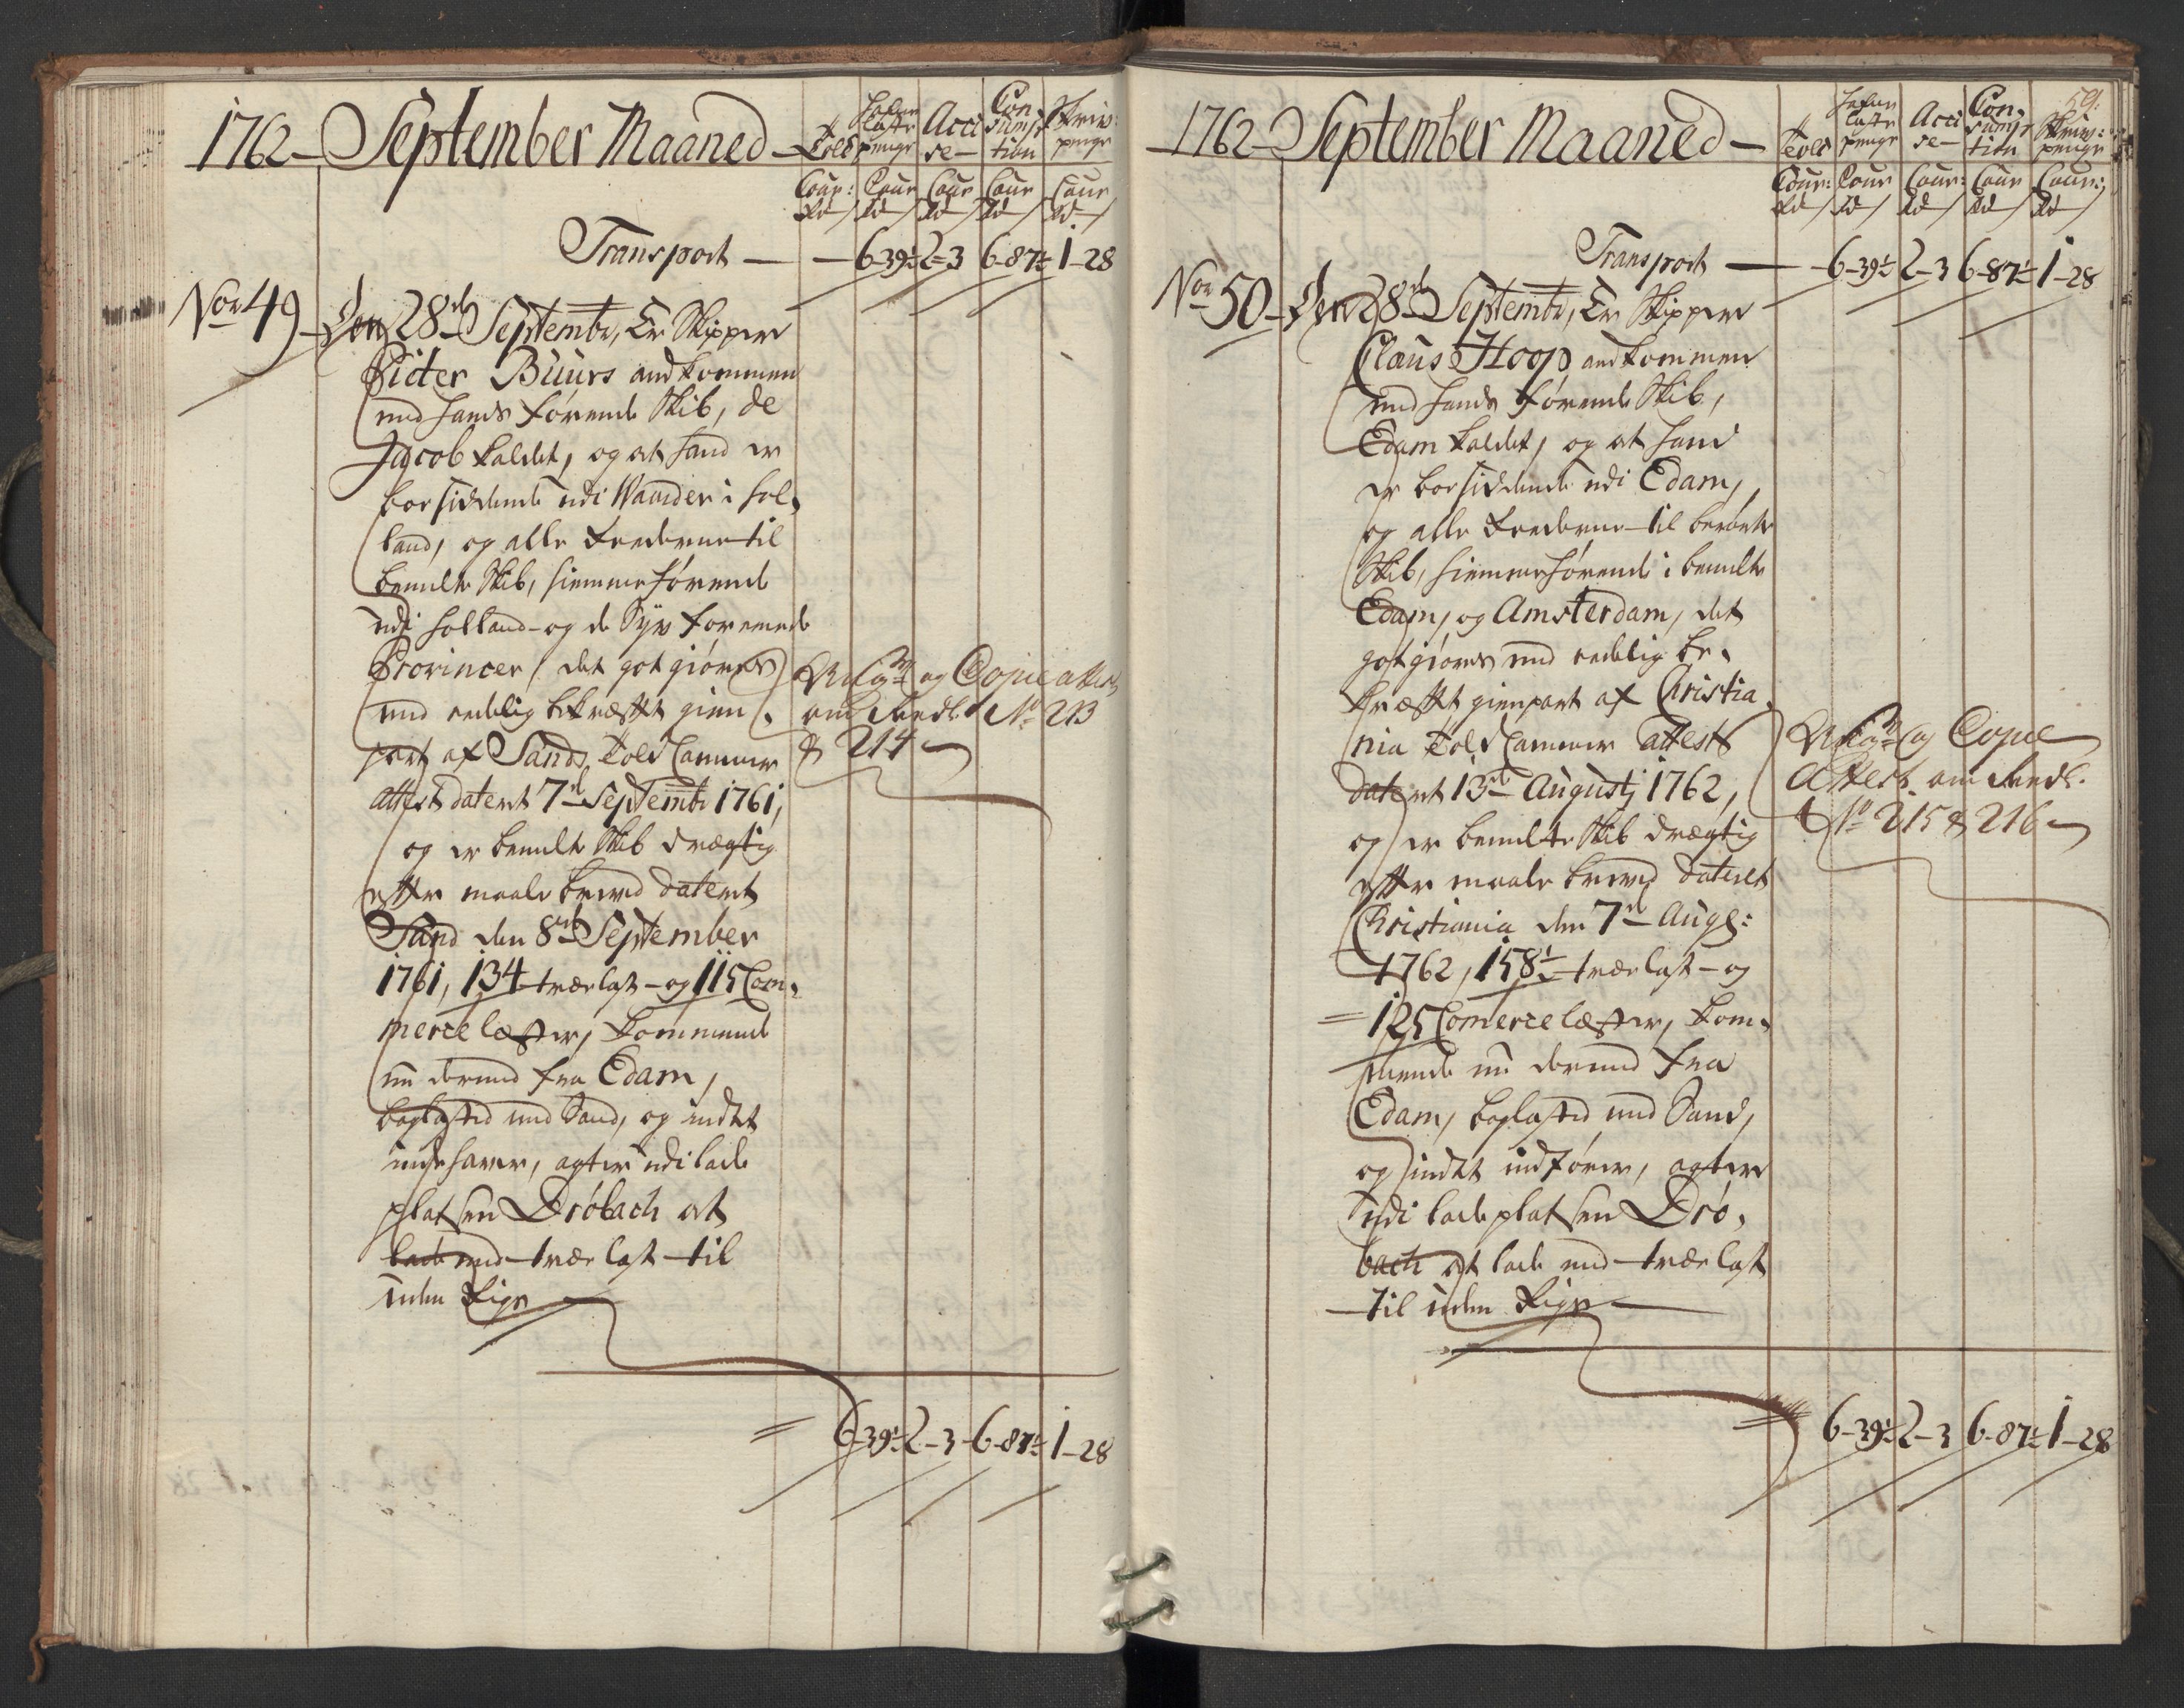 1762 - September Maaned -
Told
Hafne Laste penge
Acci se -
Con sump tion
Skriv: penge
Cour: Cour Cour Cour Cour
Rd / Rd / Rd / Rd / Rd /
Transport - - 6-39½ 2-3 6-87½ 1-28
No 49 - Den 28de Septembr, Er Skipper
Pieter Buurs andkommen
med hands førende Skib, de
Jacob kaldet, og at hand er
boesiddende udi Wander i Hol,
land, og alle Reederne til
bemelte Skib, hiemmehørende
udi Holland og de Syv foreenede
Provincer, det got giøres
med endelig bekræftet gien,
part af Sands Told Cammer
Attest datert 7de Septembr 1761,
og er bemelte Skib drægtig
efter maale brevet datert
Sand den 8de September
1761, 134 trælast - og 115 Com,
merce læster, kommende
nu dermed fra Edam,
baglasted med Sand, og indtet
indehaver, agter udi lade
platsen Drøbach at
lade med træ last til
uden Riigs
og Copie attest
om Reedl. No 213
& 214
= 6-39½ 2-3 6-87½ 1-28
59:
1762 - September Maaned -
Told
Hafne Laste penge
Acci se -
Con, sump tion
Skriv: penge
Cour: Cour Cour: Cour Cour:
Rd / Rd / Rd / Rd / Rd /
Transport - - 6-39½ 2-3 6-87½ 1-28
No 50 - Den 28de Septembr, Er Skipper
Claus Hoop andkommen
med hands førende Skib,
Edam kaldet, og at hand
er boesiddende udi Edam,
og alle Reederne til berørte
Skib, hiemmehørende i bemelte
Edam, og Amsterdam, det
got giøres med endelig be,
kræftet gienpart af Christia,
nia Told Cammer attest
datert 13de Augustj 1762,
og er bemelte Skib drægtig
efter maale brevet dateret
Christiania den 7de Augs:
1762, 158½ trælast - og
= 125 Comerce læster, kom,
mende nu dermed fra
Edam, baglasted med Sand,
og indtet indfører, agter
udi ladeplatsen Drø,
bach at lade med træ last
til uden Riigs
og Copie
Attest. om Reedl.
No 215 & 216
= 6-39½ 2-3 6-87½ 1-28